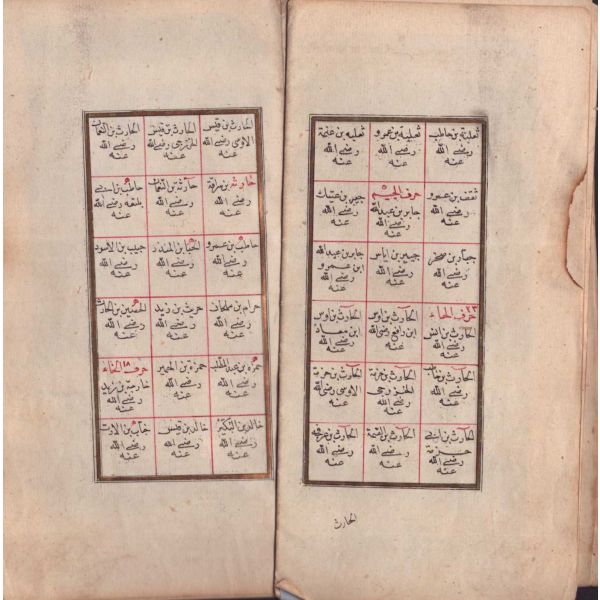 ثعلبة بن حاطب
رضي الله
عنه
ثعلبة بن عمرو
رضي الله
عنه
ثعلبة بن غنمة
رضي الله
عنه
ثقف بن عمرو
رضي الله
عنه
حرف الجيم
جابر بن عبدالله
رضي الله
عنه
جبر بن عتيك
رضي الله
عنه
جبار بن صخر
رضي الله
عنه
جبير بن اياس
رضي الله
عنه
جابر بن عبدالله
ابن عمرو
رضي الله
عنه
حرف الحاء
الحارث بن انس
رضي الله
عنه
الحارث بن اوس
ابن رافع رضي الله
عنه
الحارث بن اوس
ابن معاذ
رضي الله
عنه
الحارث بن حاطب
رضي الله
عنه
الحارث بن خزمة
الخزرجي
رضي الله
عنه
الحارث بن خزمة
الاوسي رضي الله
عنه
الحارث بن ابي
خزمة
رضي الله
عنه
الحارث بن الصمة
رضي الله
عنه
الحارث بن عرفجة
رضي الله
عنه
الحارث
الحارث بن قيس
الاوسي رضي الله
عنه
الحارث بن قيس
الخزرجي رضي الله
عنه
الحارث بن النعمان
رضي الله
عنه
حارثة بن سراقة
رضي الله
عنه
حارثة بن النعمان
رضي الله
عنه
حاطب بن ابي
بلتعه رضي الله
عنه
حاطب بن عمرو
رضي الله
عنه
الحباب بن المنذر
رضي الله
عنه
حبيب بن الاسود
رضي الله
عنه
حرام بن ملحان
رضي الله
عنه
حريث بن زيد
رضي الله
عنه
الحصين بن الحارث
رضي الله
عنه
حمزة بن عبد المطلب
رضي الله
عنه
حمزة بن الحمير
رضي الله
عنه
حرف الخاء
خارجة بن زيد
رضي الله
عنه
خالد بن البكير
رضي الله
عنه
خالد بن قيس
رضي الله
عنه
خباب بن الارت
رضي الله
عنه